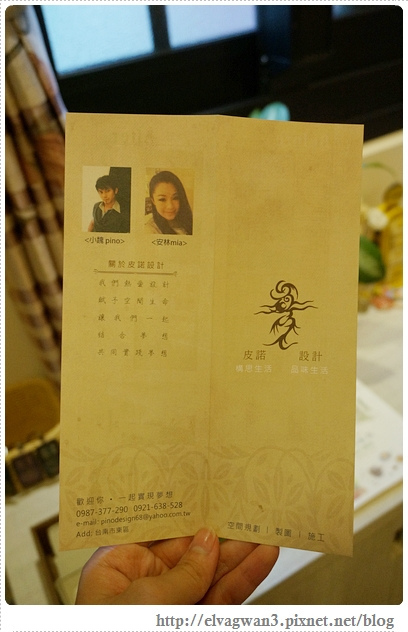 <小魏 pino>
<安林mia>
關於皮諾設計
我們熱愛設計
賦予空間生命
讓我們一起
結合夢想
共同實踐夢想
歡迎你・一起實現夢想
0987-377-290 0921-638-528
e-mail: pinodesign68@yahoo.com.tw
Add: 台南市東區
皮諾 設計
構思生活 品味生活
空間規劃 | 製圖 | 施工
http://elvagwan3.pixnet.net/blog